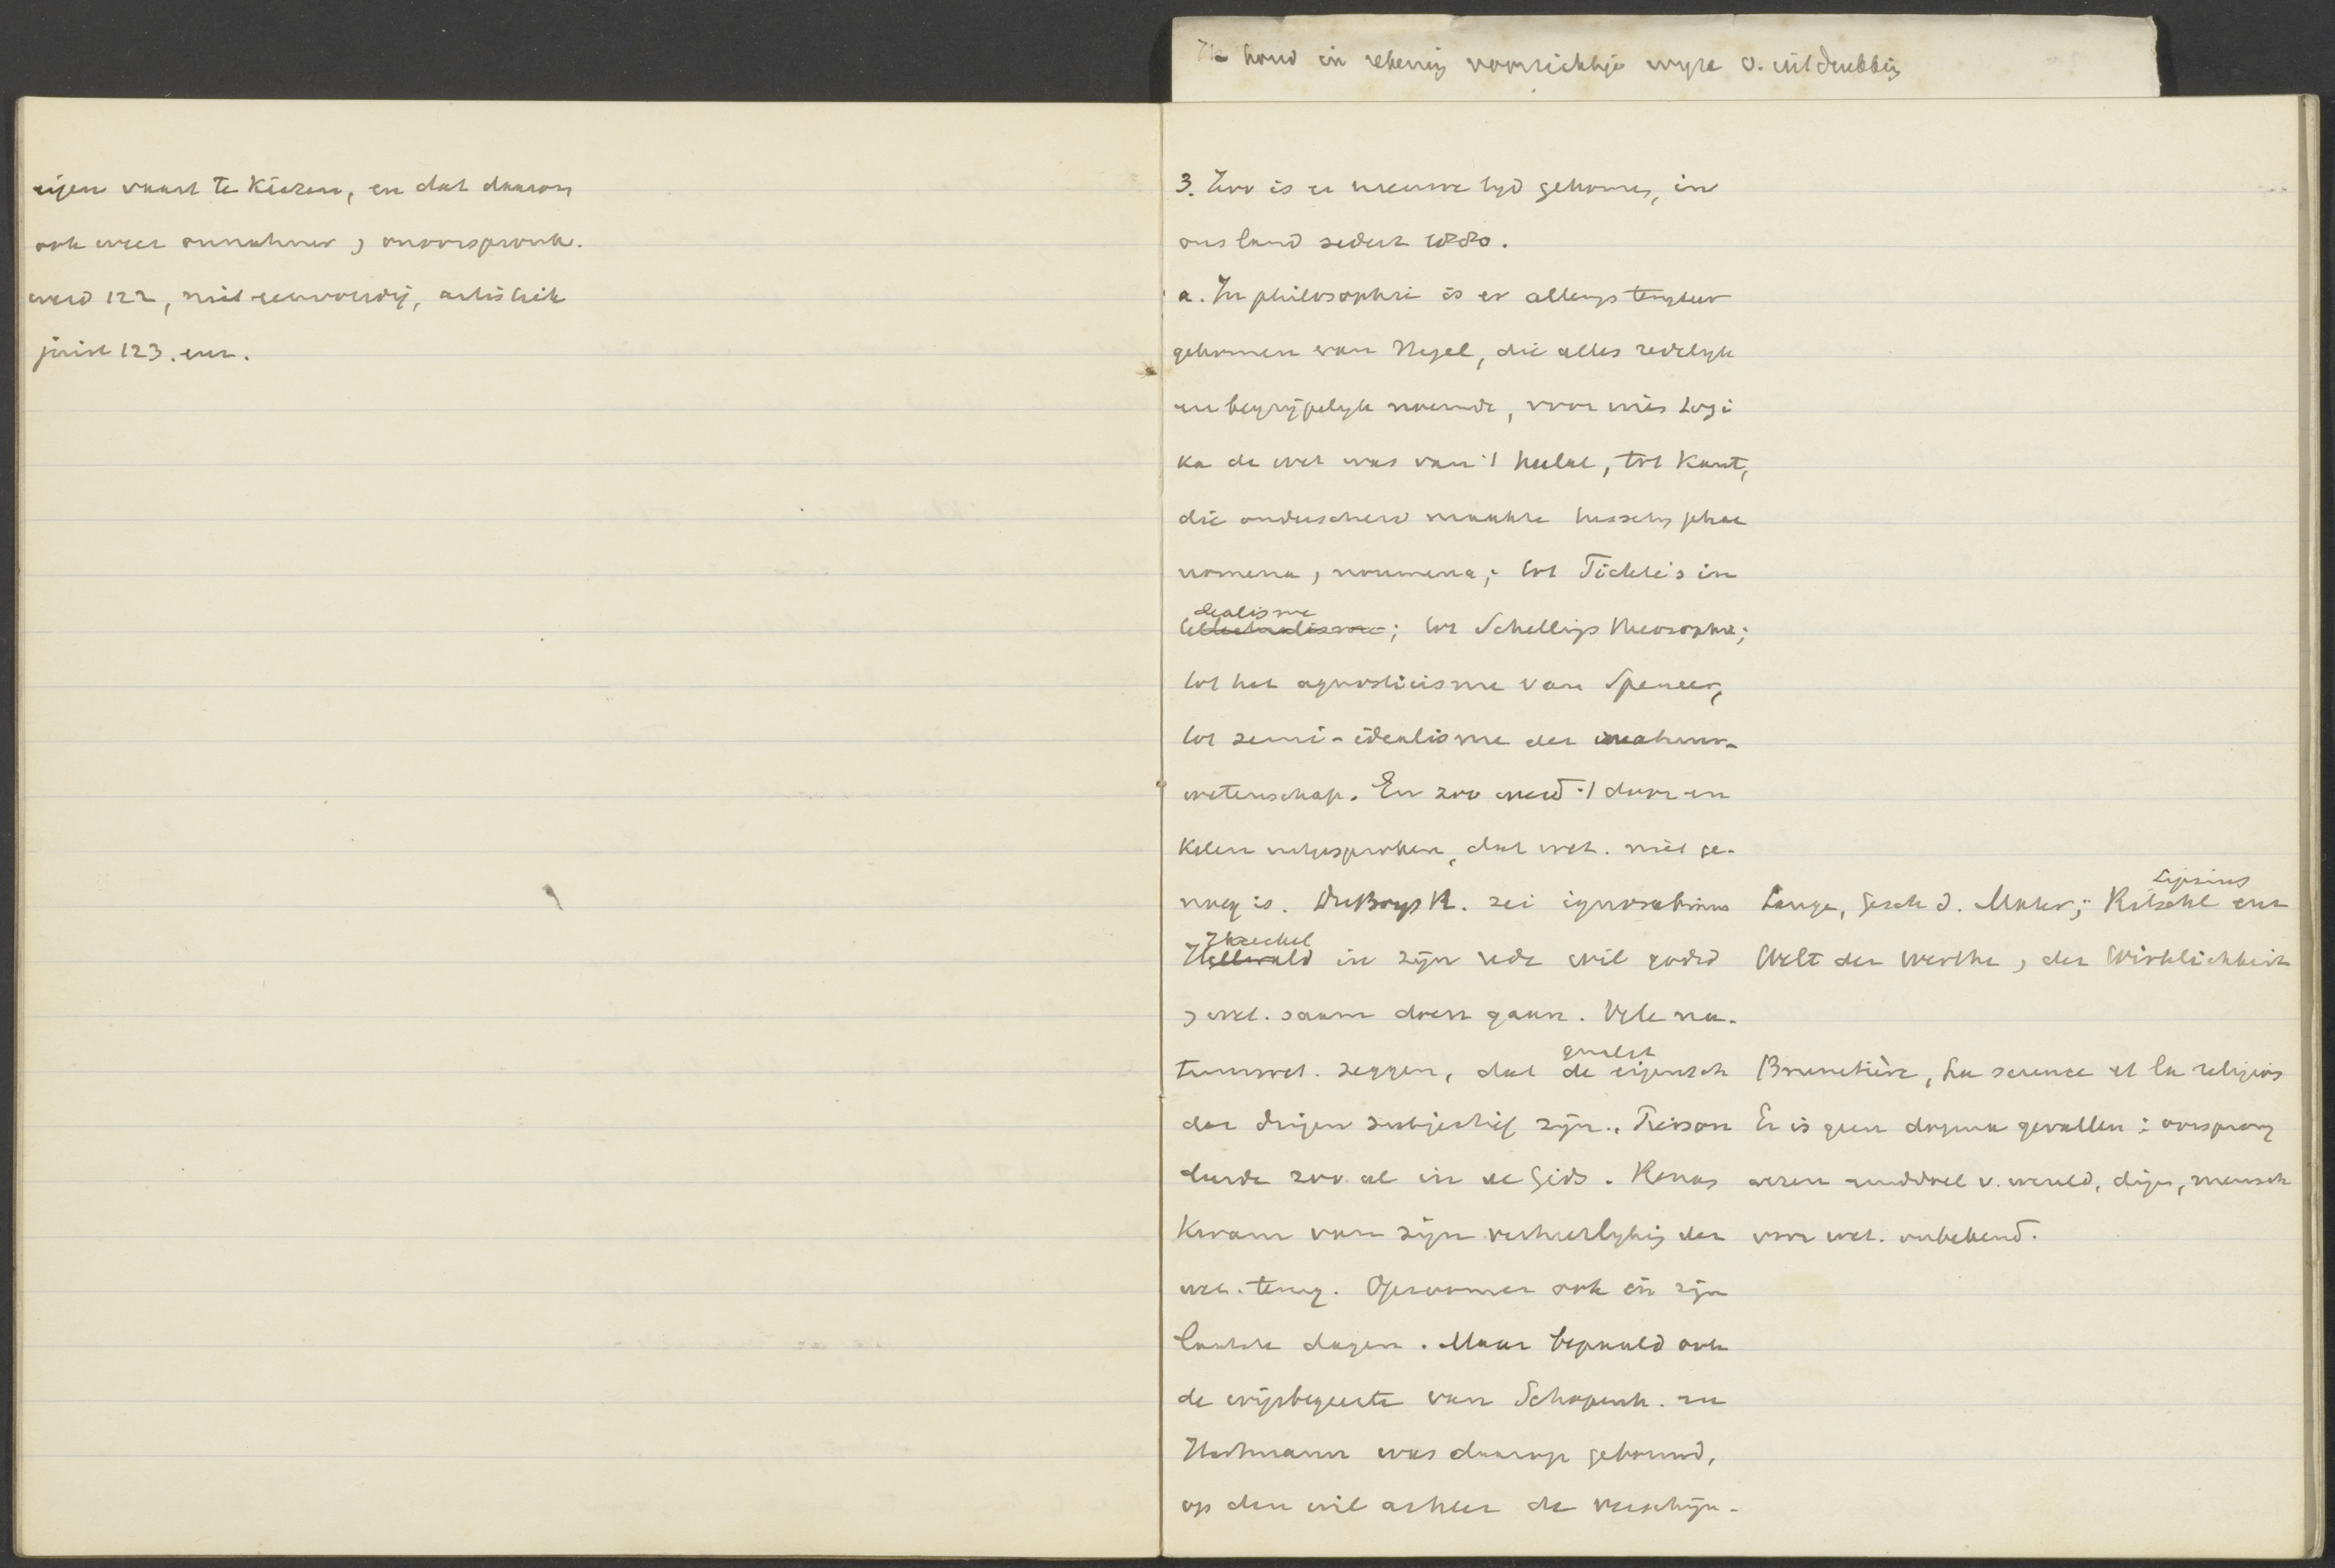 Ik houd in rekening voorzichtige wyze v. uitdrukking
eigen vaart te kiezen, en dat daarom
ook weer onnatuur, onoorspronk.
werd 122, niet eenvoudig, artistiek
juist 123. enz.
3. Zoo is er nieuwe tyd gekomen, in
ons land sedert 1880.
a. In philosophie is er allengs terugkeer
gekomen van Hegel, die alles redelyk
en begrypelyk noemde, voor wien Logi
ka de wet was van 't heelal, tot Kant,
die onderscheid maakte tusschen phae
nomena, noumena; tot Fichte's in
dealisme
; tot Schellings theosophie;
tot het agnosticisme van Spencer,
tot semi-idealisme der natuur-
wetenschap. En zoo werd 't door en
kelen uitgesproken, dat wet. niet ge-
noeg is. DuBoys R. zei ignorabimus
Haeckel
in zyn rede wil godsd
, wet. saam doen gaan. Vele na-
tuurwet. zeggen, dat de eigensch
qualit
der dingen subjectief zyn. Pierson
deede zoo al in de Gids. Renan
kwam van zyn verheerlyking der
wet. terug. Opzoomer ook in zyn
laatste dagen. Maar bepaald ook
de wijsbegeerte van Schopenh. en
Hartmann was daarop gebouwd,
op den wil achter de verschijn-
Lipsius
Lange, Gesch d. Mater; Ritschl enz
Welt der Werthe, der Wirklichkeit
Brunetière, La science et la religion
Er is geen dogma gevallen: oorsprong
wezen einddoel v. wereld, dingen, mensch
voor wet. onbekend.